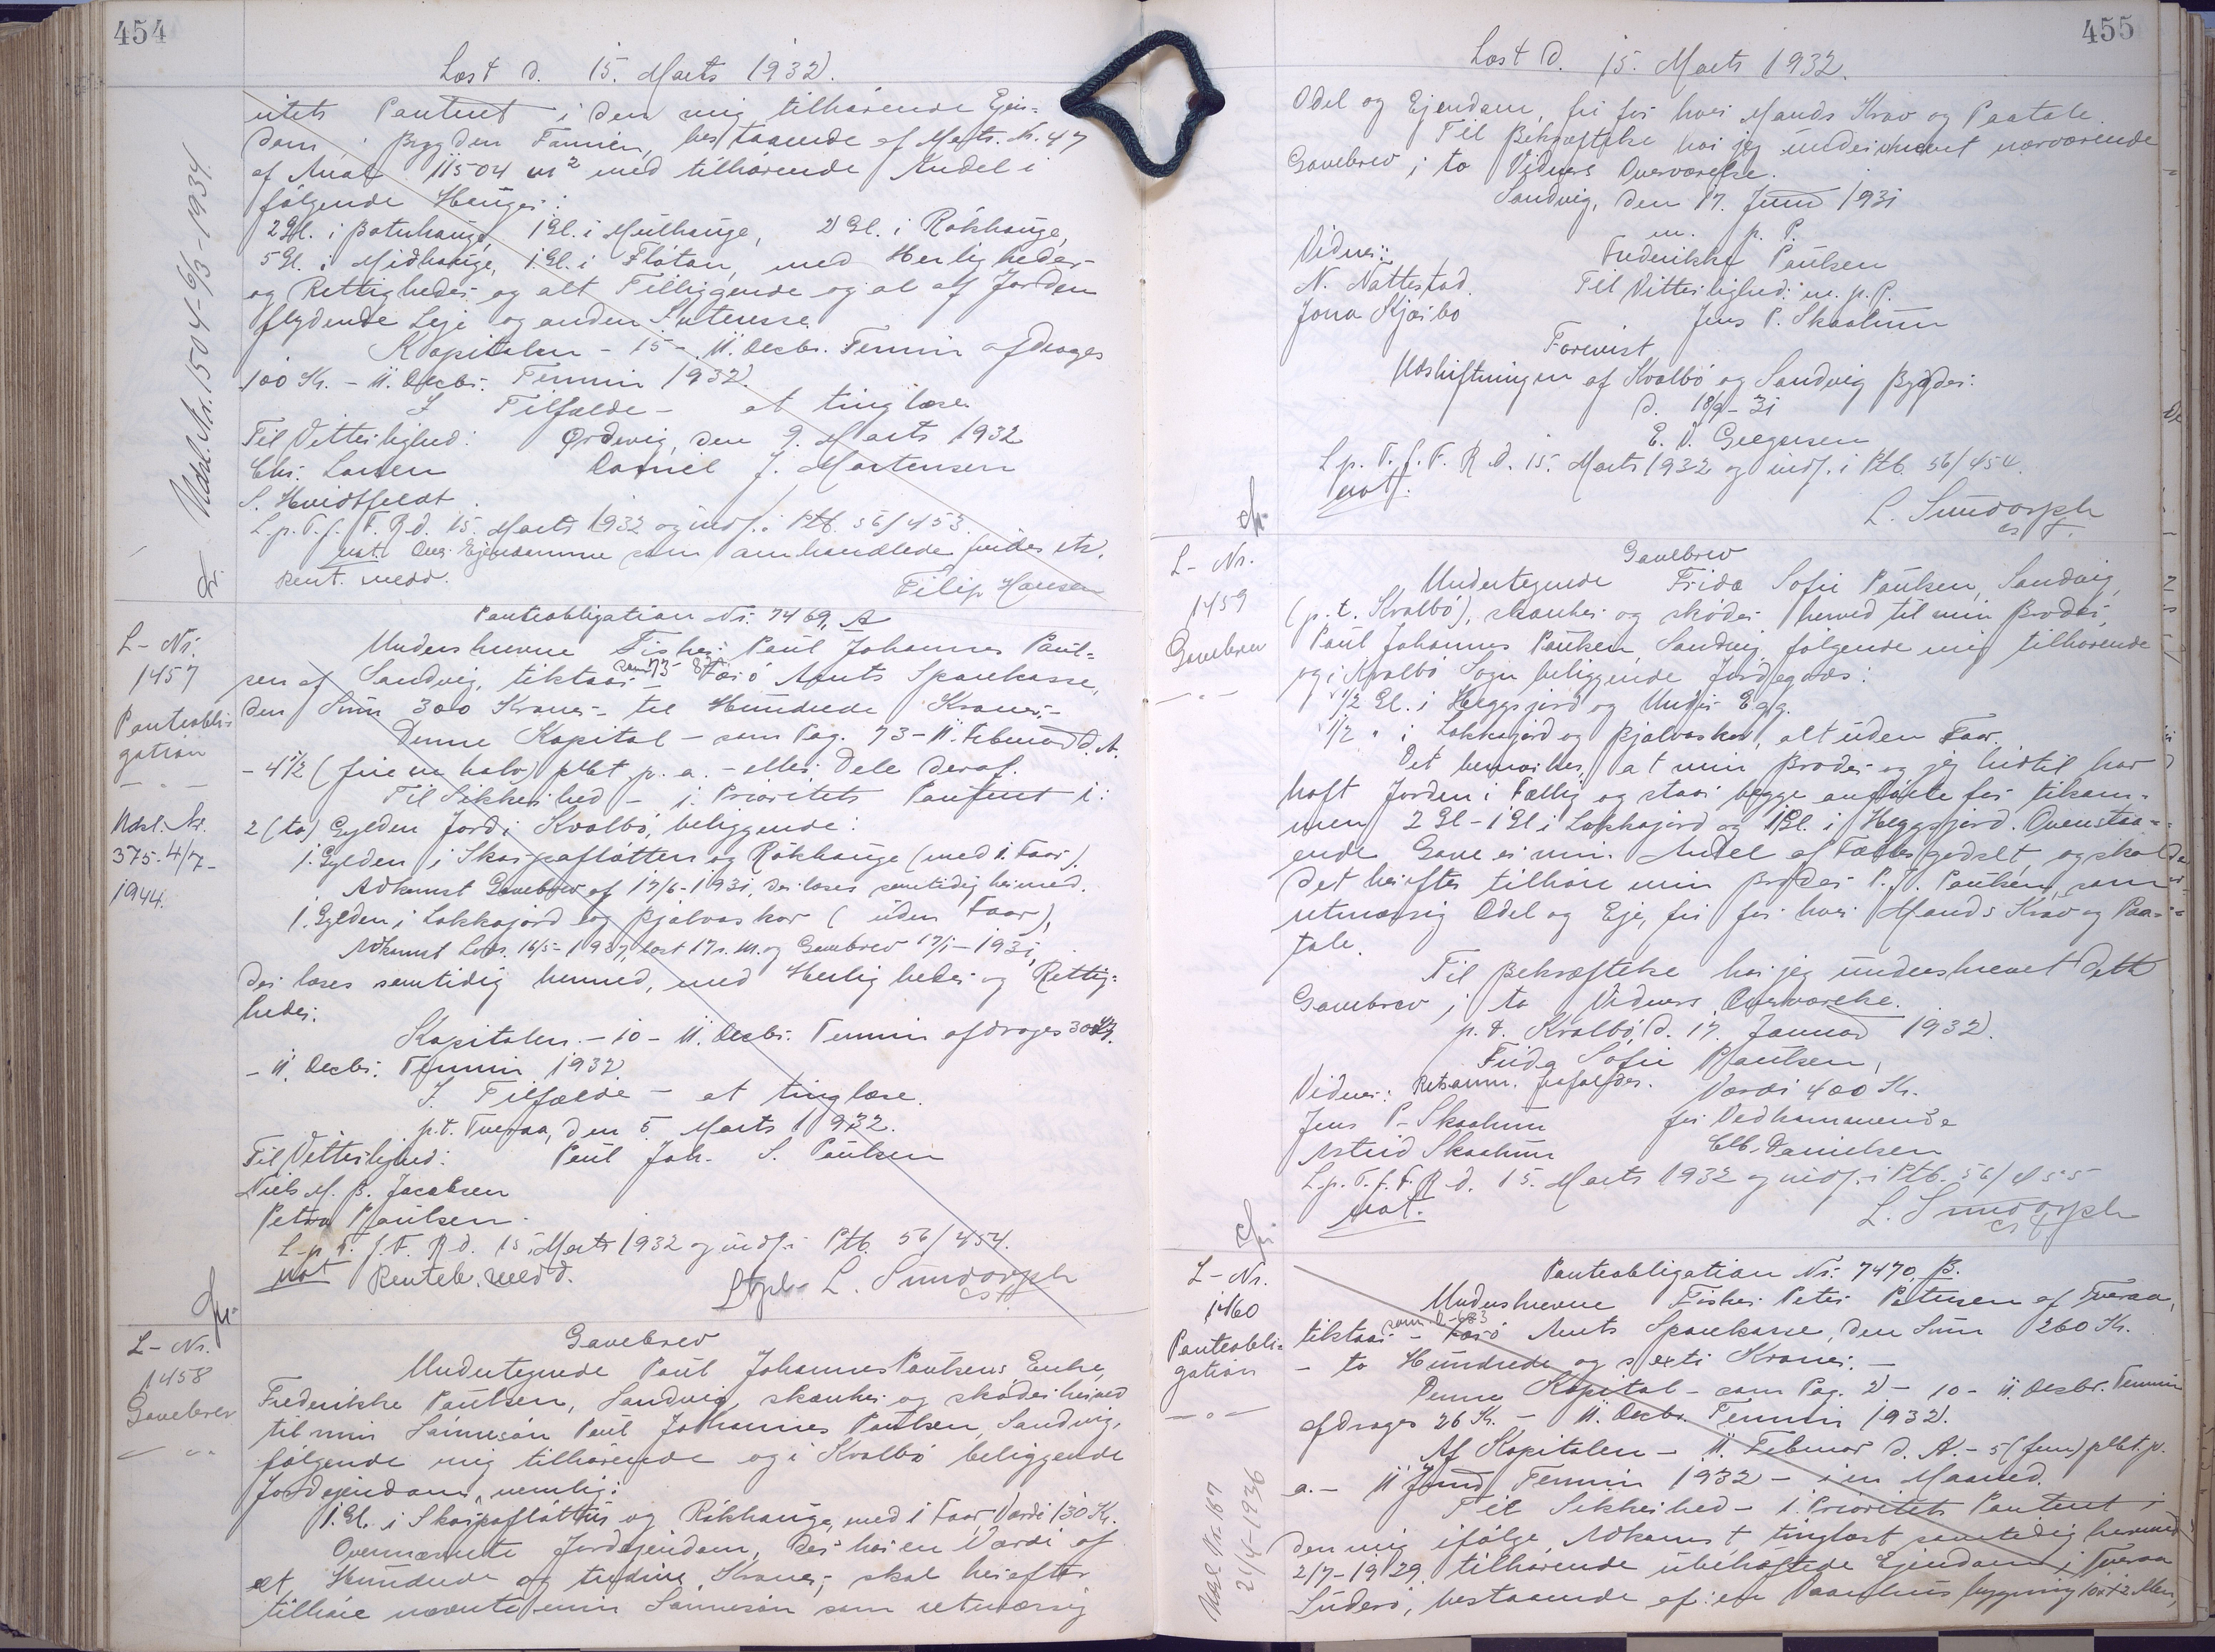 454
Læst d. 15. Marts 1932.
itets Panteret i den mig tilhørende Ejen-
dom i Bygden Famien, bestaaende af Matr. Nr. 47
af Areal 11504 m² med tilhørende Andel i
følgende Hauger:
2 Gl. i Botnhauge, 1 Gl. i Mülhauge, 2 Gl. i Rókhauge,
5 Gl. i Midhauge, 1 Gl. i Flótan, med Herligheder
og Rettigheder og alt Tilliggende og al af Jorden
flydende Leje og anden Interesse.
Kapitalen - 15 - 11. Decbr. Termin afdrages
100 Kr. - 11. Decbr. Termin 1932.
I Tilfælde - at tinglæse.
Til Vitterlighed: Ørdevig, den 9. Marts 1932
Chr. Larsen Daniel J. Mortensen
S. Hvidtfeldt.
L. p. T. f. F. R. d. 15. Marts 1932 og indf. i Ptb. 56/453.
Not. Ejendomme som omhandlede findes etc.
Rent. medd.
Filip Hansen
Udsl. Nr. 1504-6/3-1934.
L-Nr.
1457
Panteobli-
gation
- " -
Udsl. Nr.
375-4/7-
1944.
Panteobligation Nr. 7469, A
Underskrevne Fisker Poul Johannes Poul-
sen af Sandvig, tilstaar - som 73- Færø Amts Sparekasse,
den Sum 300 Kroner - tre Hundrede Kroner.-
Denne Kapital - som Pag. 73 - 11. Februar d. A.
- 4½ (fire en halv) pCt. p. a. - eller Dele deraf.
Til Sikkerhed - 1. Prioritets Panteret i:
2 (to) Gylden Jord i Kvalbø, beliggende:
1. Gylden i Skarpaflótten og Rókhauge (med 1. Faar).
Adkomst Gavebrev af 17/6-1931, der læses samtidig hermed.
1. Gylden i Lokkagjord og Bjálvaskor (uden Faar),
læst 17 s. M. og Gavebrev 17/1-1931,
der læses samtidig hermed, med Herligheder og Rettig-
heder.
Kapitalen. - 10 - 11. Decbr. Termin afdrages 30 Kr.
- 11. Decbr. Termin 1932.
I Tilfælde - at tinglæse.
p.t. Tveraa, den 5. Marts 1932.
Til Vitterlighed: Poul Joh. S. Poulsen
Niels M. B. Jacobsen
Petra Poulsen.
L. p. T. f. F. R. d. 15. Marts 1932 og indf. i Ptb. 56/454.
Not Renteb. medd.
L. Sundorph
cst.
L-Nr.
1458
Gavebrev
- " -
Gavebrev
Undertegnede Poul Johannes Poulsens Enke,
Frederikke Poulsen, Sandvig, skænker og skøder herved
til min Sønnesøn Poul Johannes Poulsen, Sandvig,
følgende mig tilhørende og i Kvalbø beliggende
Jordejendom, nemlig:
1. Gl. i Skarpaflóttus og Rókhauge, med 1 Faar Værdi 130 Kr.
Ovennævnte Jordejendom, der har en Værdi af
et Hundrede og tredive Kroner, skal herefter
tilhøre nævnte min Sønnesøn som retmæssig
455
Læst d. 15. Marts 1932.
Odel og Ejendom, fri for hver Mands Krav og Paatale.
Til Bekræftelse har jeg underskrevet nærværende
Gavebrev i to Vidners Overværelse.
Sandvig, den 17. Juni 1931
m. p. P.
Vidner: Frederikke Poulsen
N. Nattestad. Til Vitterlighed: m. p. P.
Jona Kjærbo Jens P. Skaalum
Forevist
Udskiftningen af Kvalbø og Sandvig Bygder:
d. 18/9-31
E. V. Gregersen
L. p. T. f. F. R. d. 15. Marts 1932 og indf. i Ptb. 56/454.
Not.
L. Sundorph
cst.
L-Nr.
1459
Gavebrev
- " -
Gavebrev
Undertegnede Frida Sofie Poulsen, Sandvig,
(p.t. Kvalbø), skænker og skøder herved til min Broder,
Poul Johannes Poulsen, Sandvig, følgende mig tilhørende
og i Kvalbø Sogn beliggende Jordegods:
1/2 Gl. i Heggsjord og Undir Egg.
1/2 " i Lokkagjord og Bjalvaskor, alt uden Faar.
Det bemærkes, at min Broder og jeg hidtil har
haft Jorden i Fællig og staar begge anførte for tilsam-
men 2 Gl - 1 Gl i Lokkagjord og 1 Gl. i Heggsjord. Ovenstaa-
ende Gave er min Andel af Fællesgodset, og skal
det herefter tilhøre min Broder P. J. Poulsen, som
retmæssig Odel og Eje, fri for hver Mands Krav og Paa-
tale.
Til Bekræftelse har jeg underskrevet dette
Gavebrev i to Vidners Overværelse.
p. t. Kvalbø, d. 17. Januar 1932.
Frida Sofie Poulsen,
Vidner: Retsanm. Værdi 400 Kr.
Jens P. Skaalum for Vedkommende
Astrid Skaalum Chr. Danielsen
L. p. T. f. F. R. d. 15. Marts 1932 og indf. i Ptb. 56/455
Not.
L. Sundorph
cst.
L-Nr.
1460
Panteobli-
gation
- " -
Udsl. Nr. 167
21/4-1936
Panteobligation Nr. 7470, B.
Underskrevne Fisker Peter Petersen af Tveraa,
tilstaar - som Færø Amts Sparekasse, den Sum 260 Kr.
- to Hundrede og sexti Kroner. -
Denne Kapital - som Pag. 2 - 10 - 11. Decbr. Termin
afdrages 26 Kr. - 11. Decbr. Termin 1932.
Af Kapitalen - 11. Februar d. A. - 5 (fem) pCt. p.
a. - 11 Juni Termin 1932 - i en Maaned.
Til Sikkerhed - 1. Prioritets Panteret i
den mig ifølge Adkomst, tinglæst samtidig hermed
2/7-1929 tilhørende ubehæftede Ejendom i Tveraa
Suderø, bestaaende af: en Vaanhus bygning